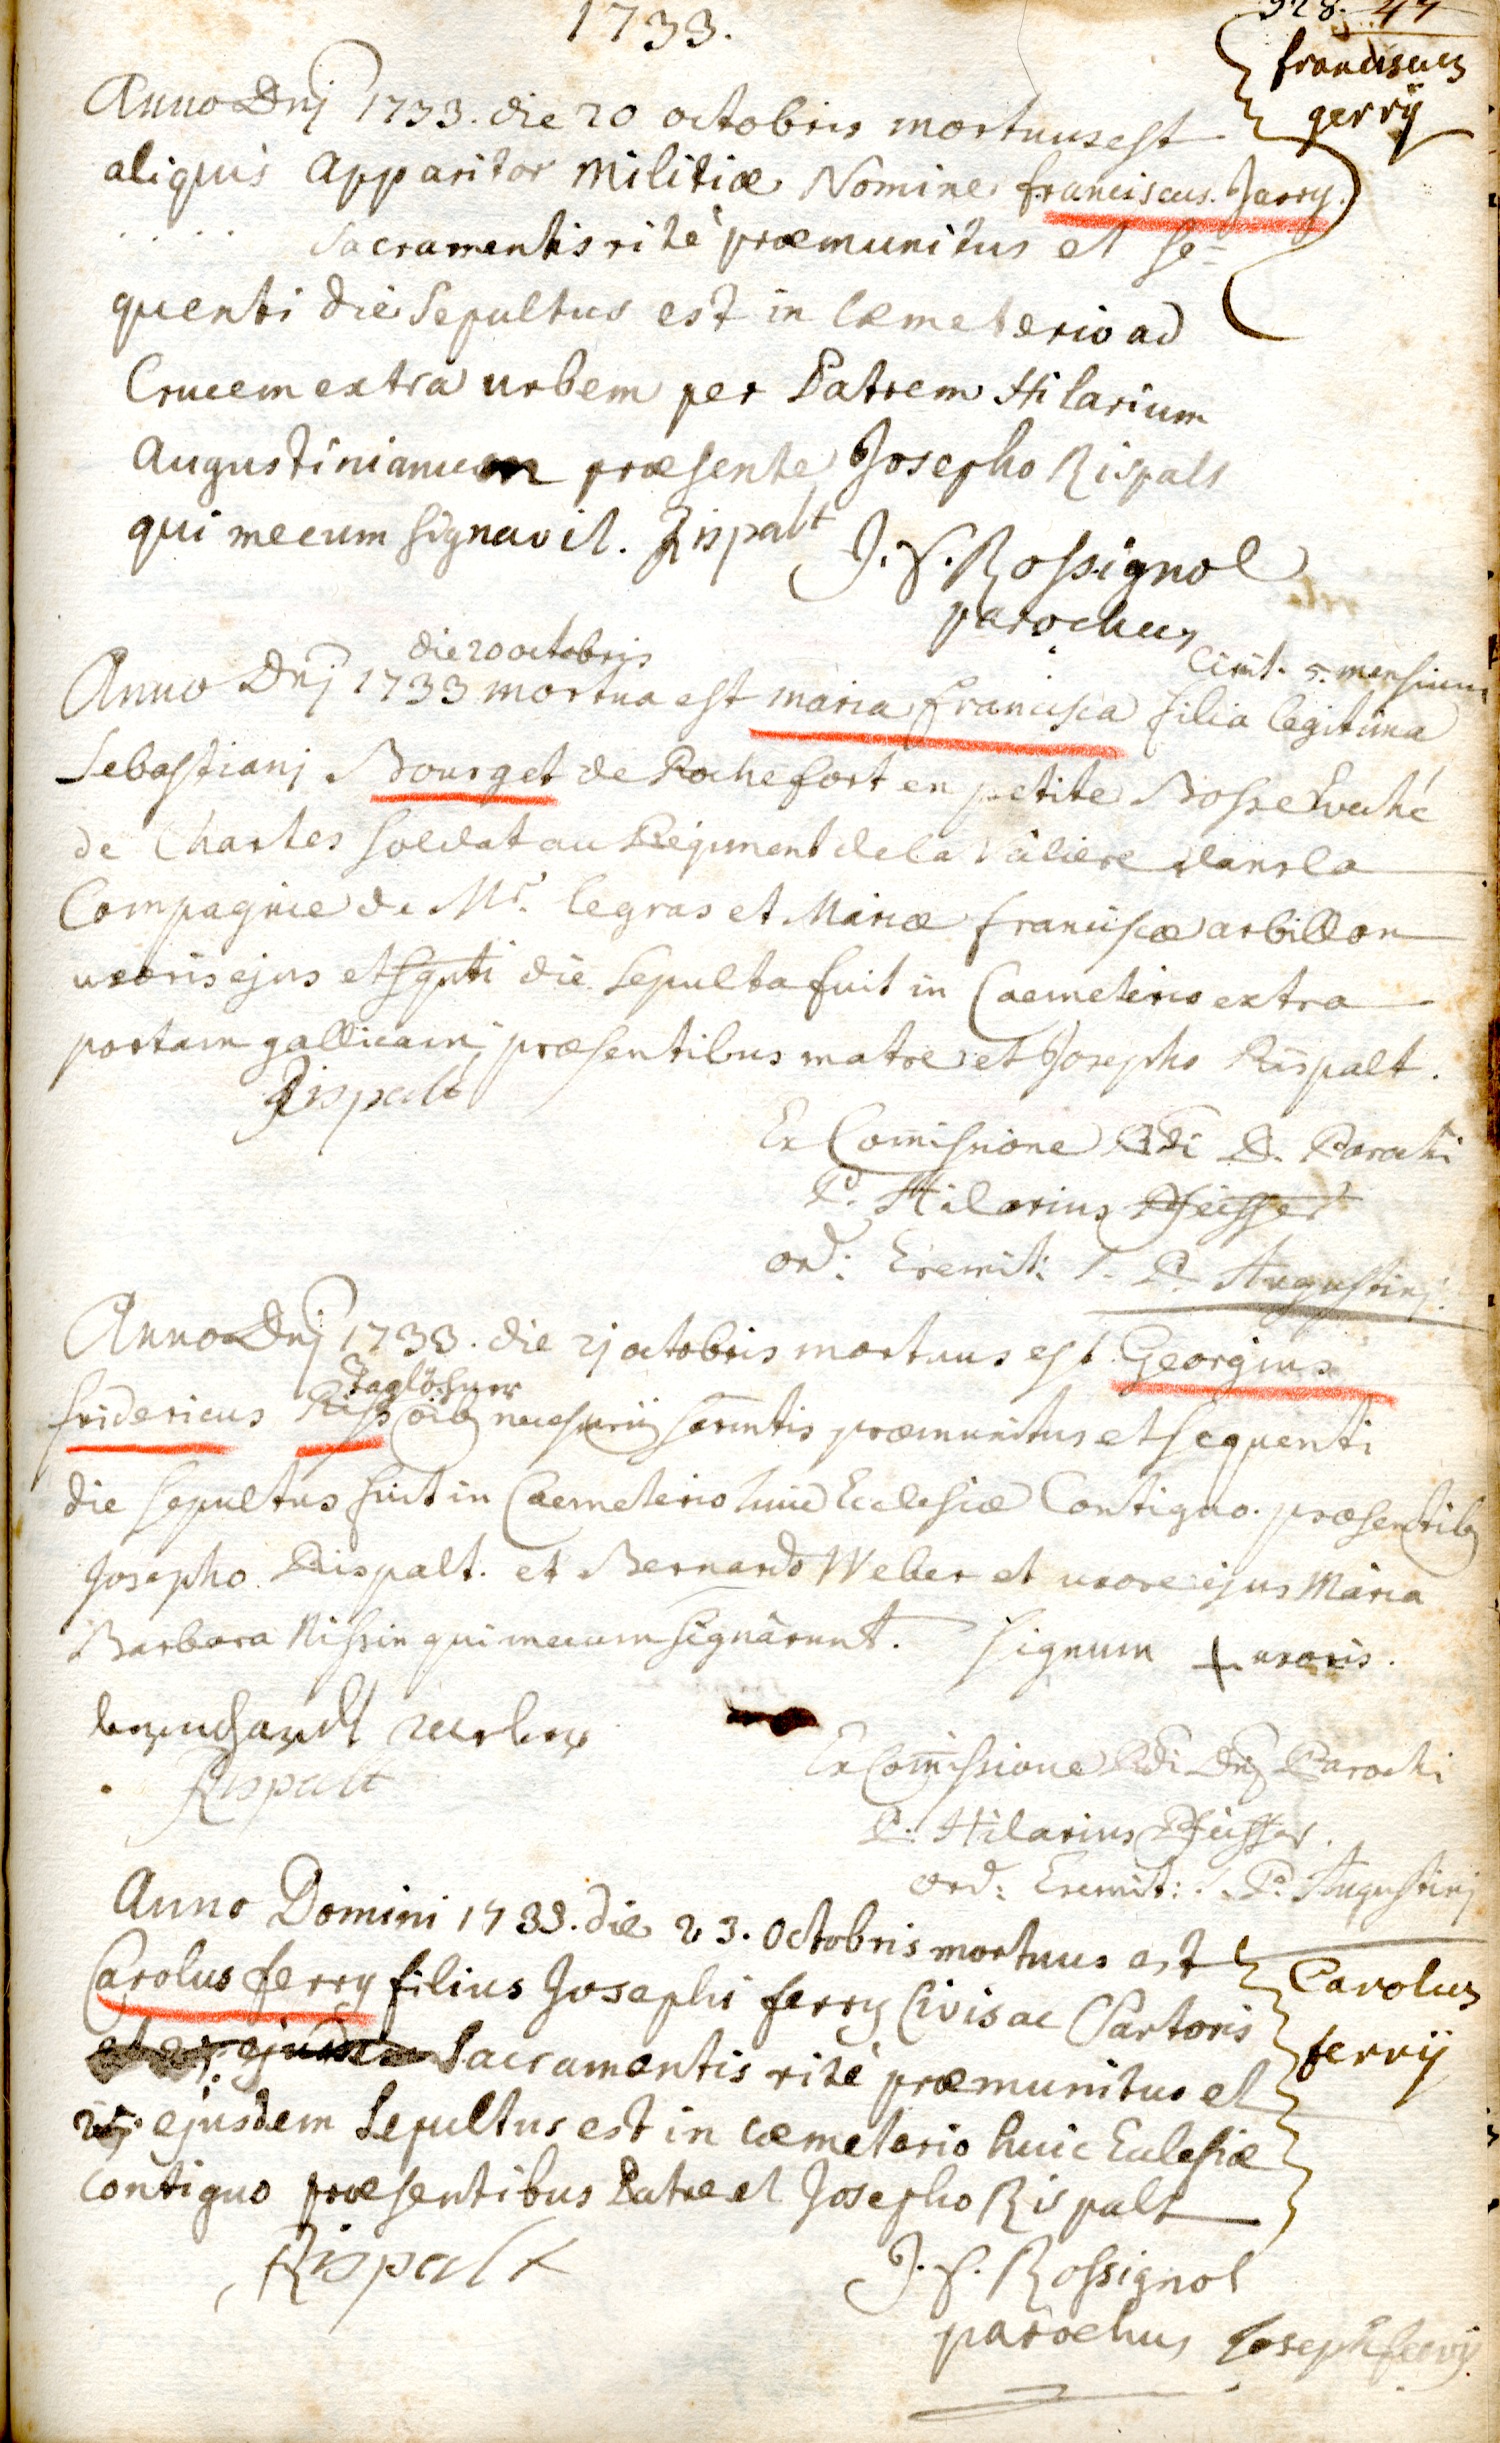 1733.
928. 47
franciscus
gerrÿ
Anno Dnj 1733. die 20 octobris mortuus est
aliquis apparitor militiæ Nomine franciscus. Jarry.
Sacramentis ritè præmunitus et se=
quenti die Sepultus est in Cæmeterio ad
Crucem extra urbem per Patrem Hilarium
Augustinianum præsente Josepho Rispalt
qui mecum signavit. Rispalt J. F. Rossignol
parochus
die 20 octobris 5. mensium
Anno Dnj 1733 mortua est maria francisca filia legitima
Sebastianj Bourget de Rochefort en petite Bosse Eveché
de Chartes soldat au Regiment de la Valiere dans la
Compagnie de Mr. legras et Mariæ franciscæ arbillon
uxoris ejus et sqnti die Sepulta fuit in Caemeterio extra
portam gallicam, præsentibus matre et Josepho Rispalt.
Rispalt
Ex Commissione Rdi D. Parochi
P. Hilarius Pfeiffer
ord: Eremit: S. P. Augustinj.
Anno Dnj 1733. die 21 octobris mortuus est Georgius
Taglöhner
fridericus Riss oib9 necessariis scrmtis præmunitus et sequenti
die sepultus fuit in Caemeterio huic Ecclesiæ Contiguo. præsentib9
Josepho Rispalt. et Bernardo Weber et uxore ejus Maria
Barbara Nissin qui mecum signârunt. Signum + uxoris.
bernhardt weber
Rispalt
Ex Commissione Rdi Dnj Parochi
P. Hilarius Pfeiffer.
ord: Eremit: S. P. Augustinj
Anno Domini 1733. die 23. Octobris mortuus est
Carolus ferry filius Josephi ferry Civis ac Sartoris
Carolus
ferrÿ
Sacramentis ritè præmunitus et
25 ejusdem Sepultus est in cæmeterio huic Eclesiæ
contiguo præsentibus Patre et Josepho Rispalt
Rispalt J. F. Rossignol
parochus Joseph ferrÿ